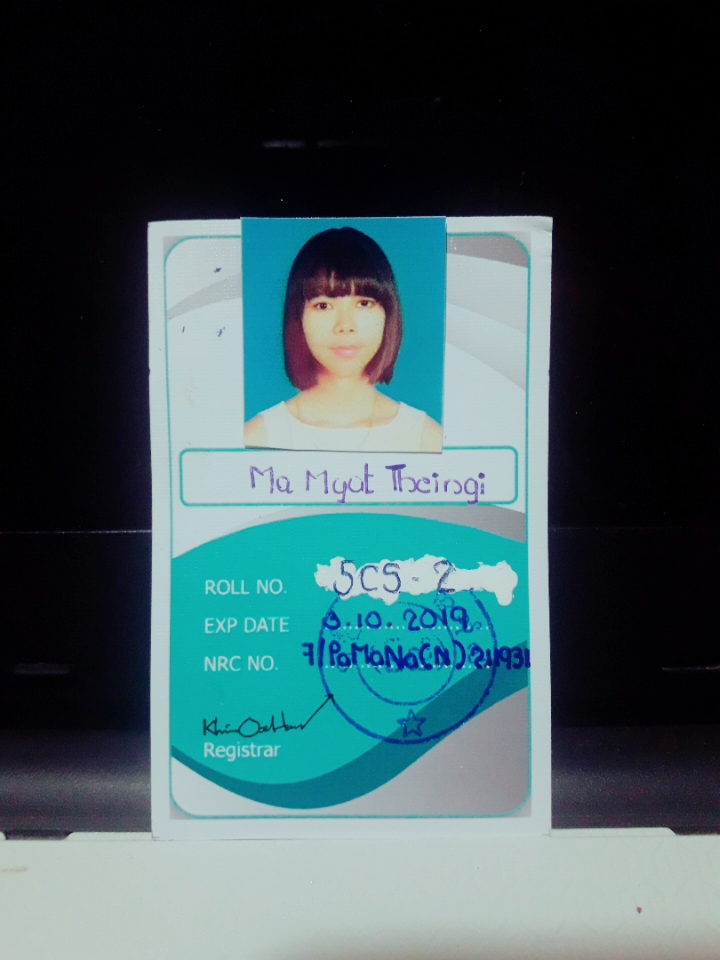 Ma Myat Theingi
ROLL NO. 5CS - 2
EXP DATE 3.10.2019
NRC NO. 7/PaMaNa(N)
Registrar